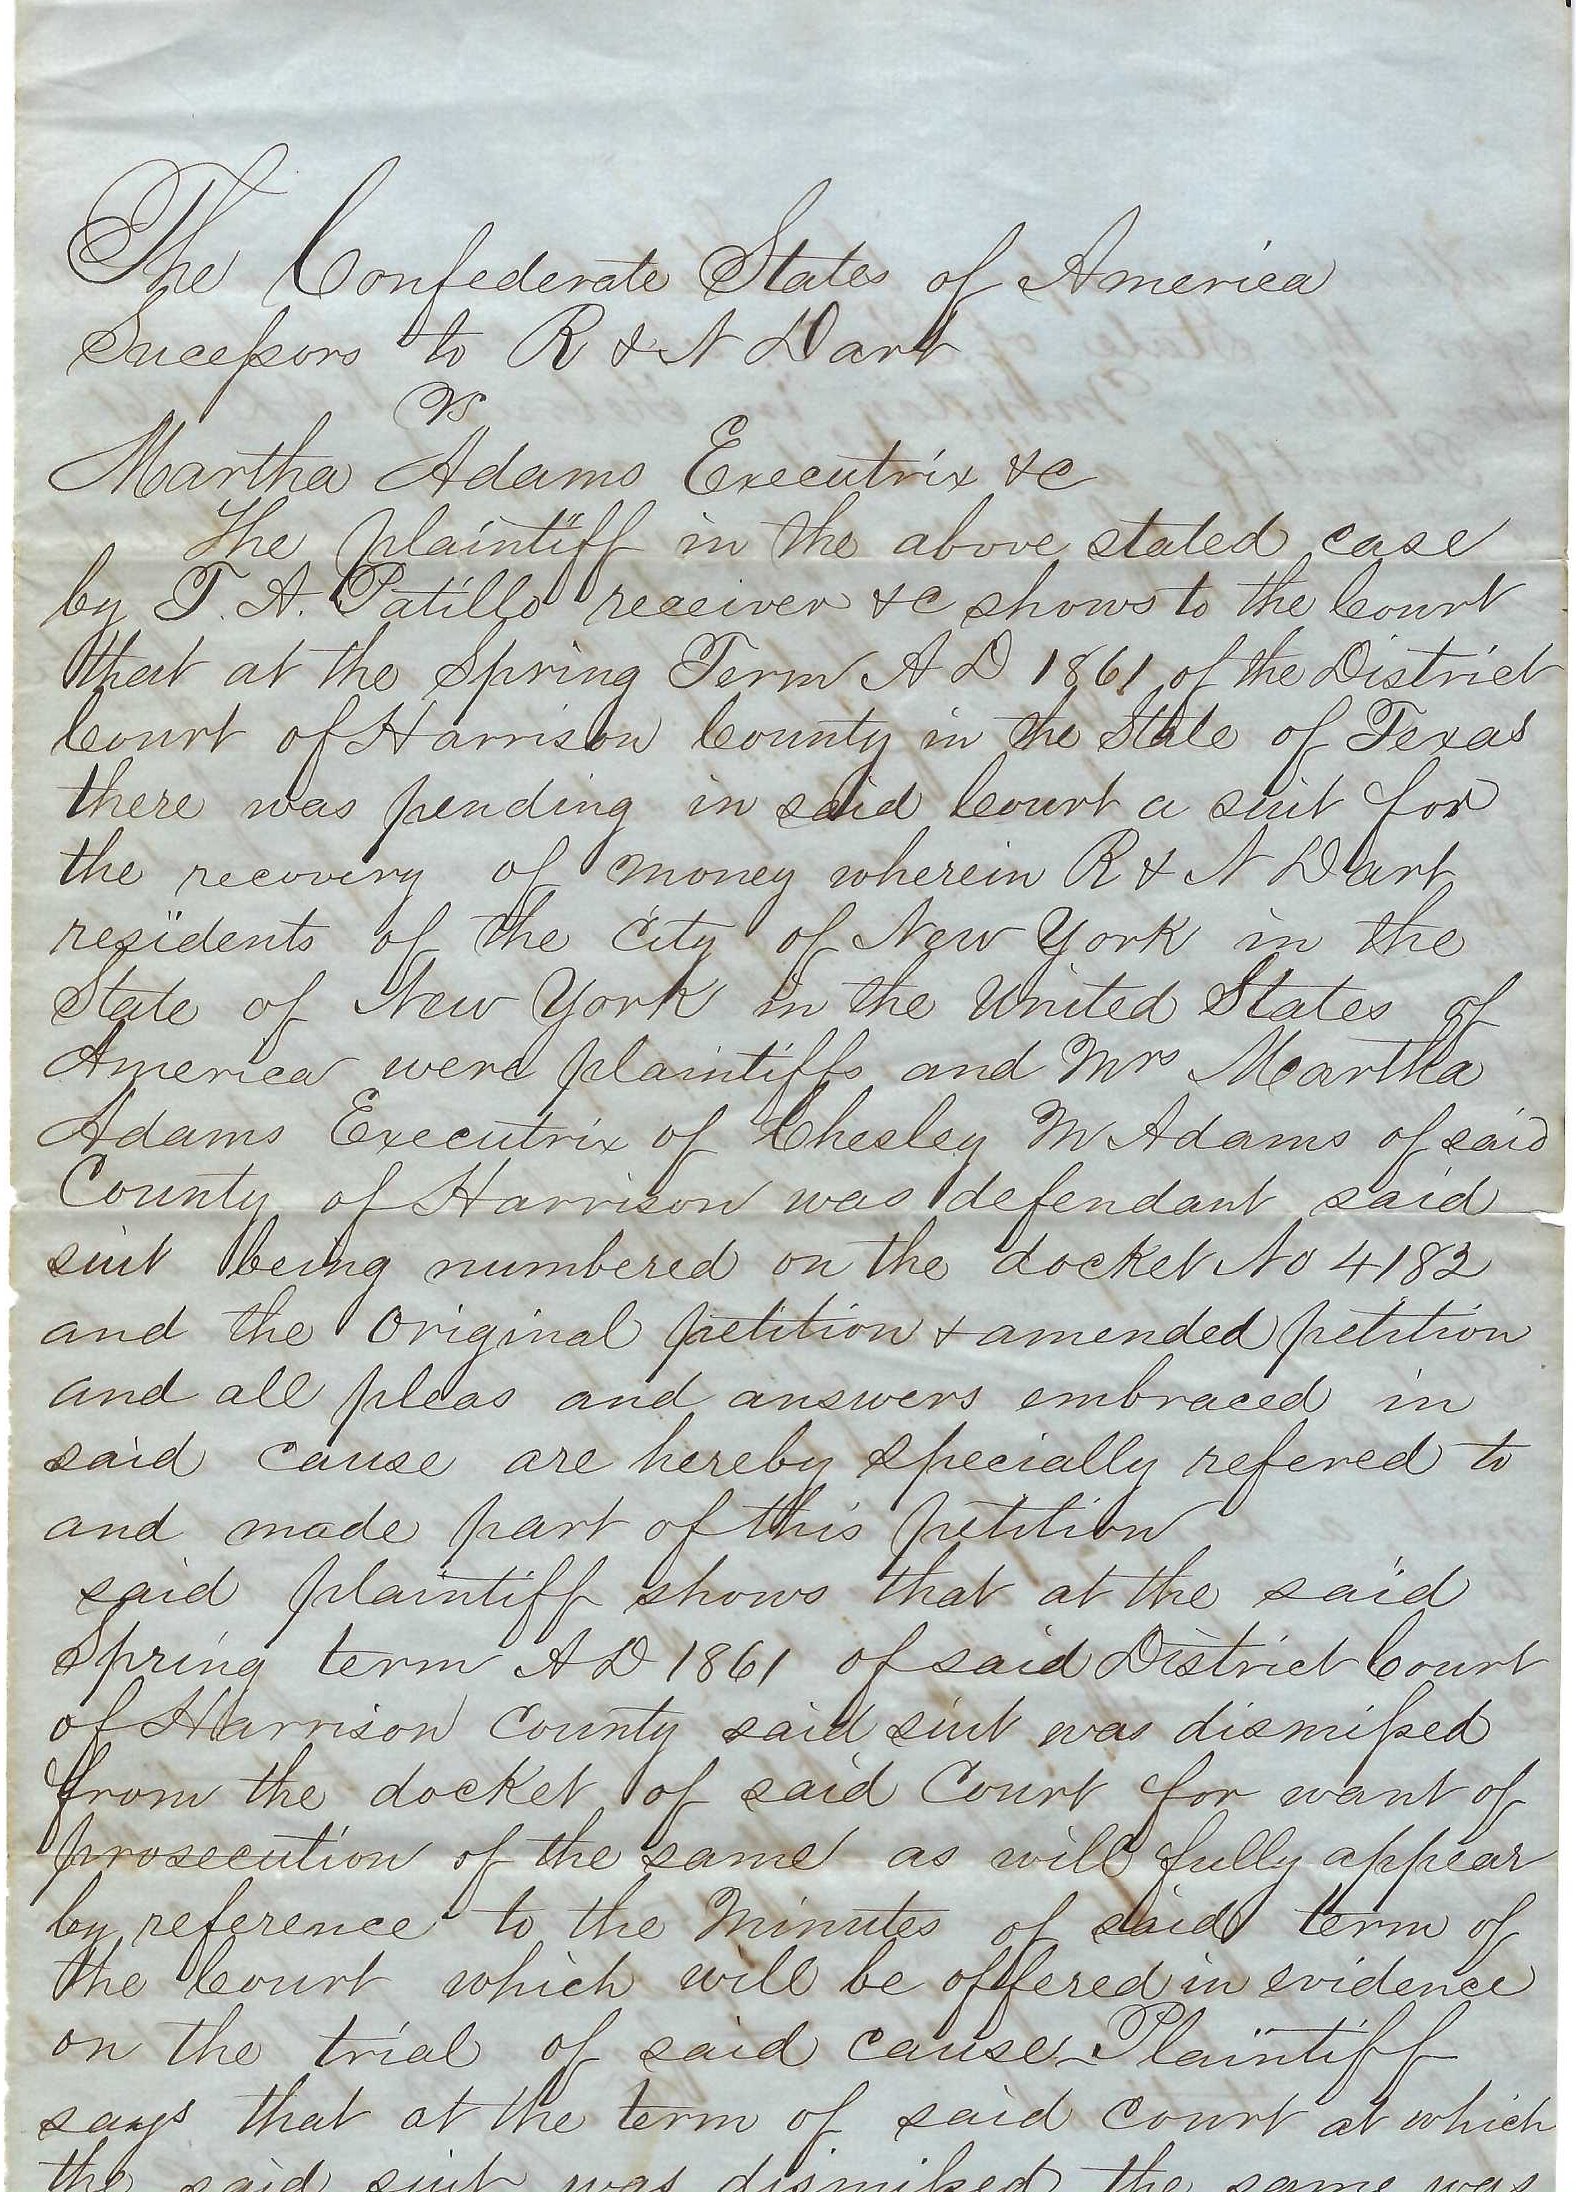 The Confederate States of America
Sucessors to R & N Dart
vs
Martha Adams Executrix &c
The plaintiff in the above stated case
by T. A. Patillo receiver &c shows to the Court
that at the Spring Term A D 1861 of the District
Court of Harrison County in the State of Texas
there was pending in said Court a suit for
the recovery of money wherein R & N Dart
residents of the City of New York in the
State of New York in the United States of
America were plaintiffs and Mrs Martha
Adams Executrix of Chesley M Adams of said
County of Harrison was defendant said
suit being numbered on the docket No 4182
and the original petition & amended petition
and all pleas and answers embraced in
said cause are hereby specially refered to
and made part of this petition
said plaintiff shows that at the said
Spring term A D 1861 of said District Court
of Harrison County said suit was dismissed
from the docket of said Court for want of
prosecution of the same as will fully appear
by reference to the Minutes of said term of
the Court which will be offered in evidence
on the trial of said cause - Plaintiff
says that at the term of said court at which
the said suit was dismissed the same was